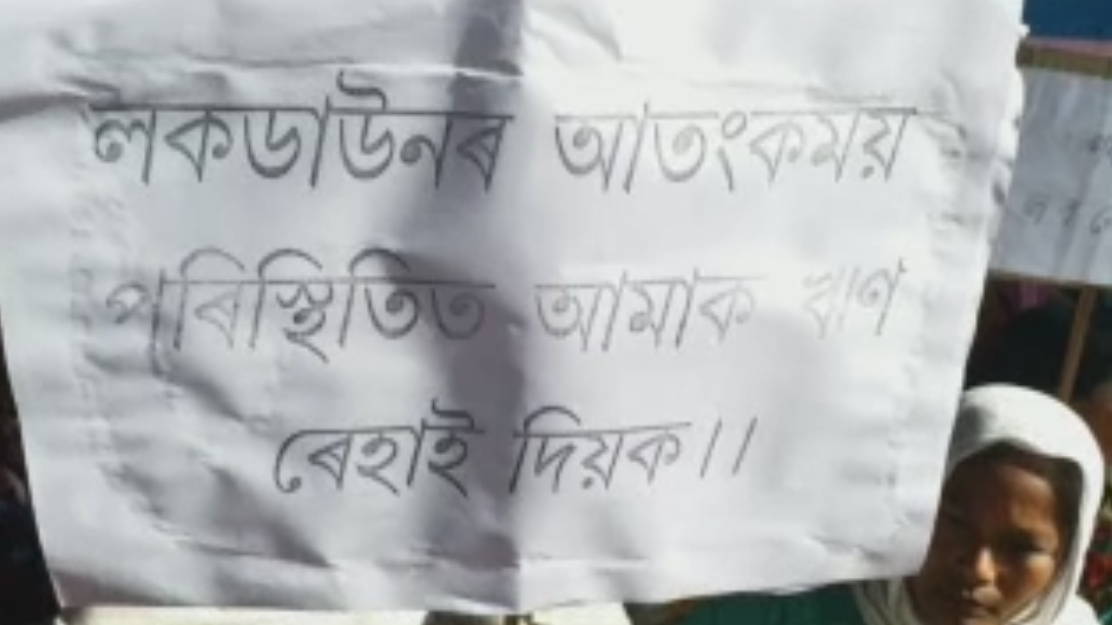 লকডাউনৰ আতংকময়
পৰিস্থিতিত আমাক ঋণ
ৰেহাই দিয়ক।।